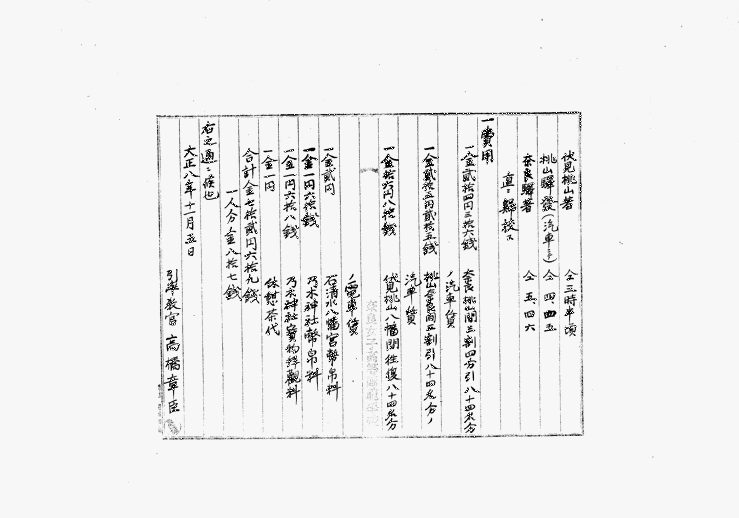 伏見桃山著　仝三時半頃
桃山驛發(汽車ニテ)　仝 四、四五
奈良驛著　仝 五、四六
直ニ歸校ス
一費用
一金貳拾四円三拾六銭　奈良桃山間三割四分引八十四名分
ノ汽車賃
一金貳拾五円貳拾五銭　桃山奈良間五割引八十四名分ノ
汽車賃
一金拾六円八拾銭　伏見桃山八幡間往復八十四名分
ノ電車賃
一金貳円　石清水八幡宮幣帛料
一金一円六拾銭　乃木神社幣帛料
一金一円六拾八銭　乃木神社寳物拝觀料
一金一円　休憩茶代
合計金七拾貳円六拾九銭
一人分金八拾七銭
右之通ニ候也
大正八年十一月五日
引率教官 高橋章臣